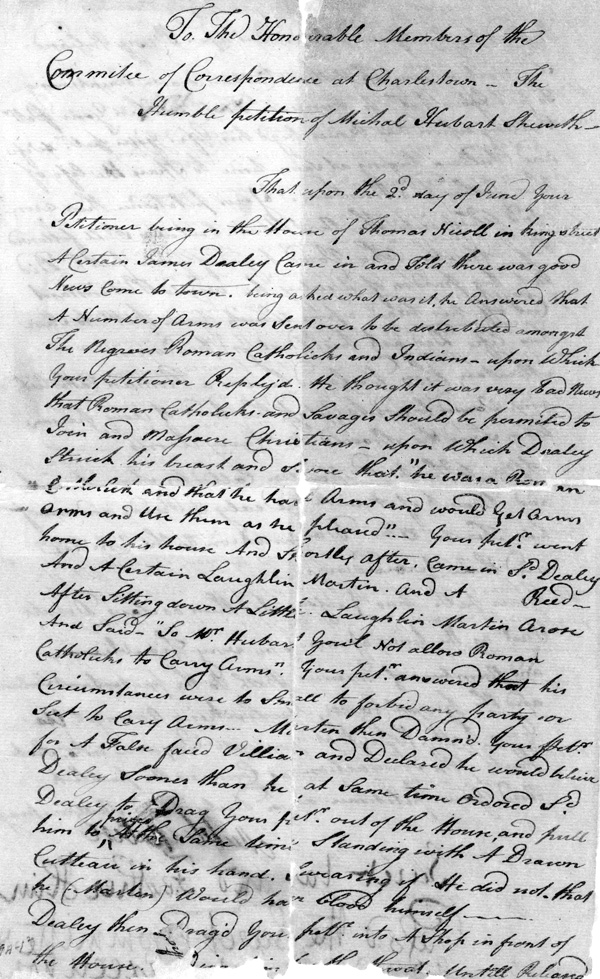 To The Honourable Members of the
Committee of Correspondence at Charlestown – The
Humble petition of Michal Hubart Sheweth –
That upon the 2d. day of June Your
Petitioner being in the House of Thomas Nicoll in king street
A Certain James Dealey Came in and Told there was good
News Come to town. being asked what was it, he Answered that
A Number of Arms was Sent over to be distributed amongst
The Negroes Roman Catholicks and Indians – upon Which
Your petitioner Replyd. He thought it was very bad News
that Roman Catholicks and Savages Should be permited to
Join and Massacre Christians – upon Which Dealey
Struck his breast and Swore that "he was a Roman
Catholick and that he had Arms and would get Arms
Arms and Use them as he pleasd" – Your petr. went
home to his house And Shortly after, Came in Sd. Dealey
And A Certain Laughlin Martin. And A Reed –
After Sitting down A Little. Laughlin Martin Arose
And Said – "So Mr. Hubart Youl Not allow Roman
Catholicks to Carry Arms". Your petr. answered that his
Circumstances were to Small to forbid any party or
Sect to Cary Arms – Martin then Damnd. Your petr.
for A False faced Villian and Declared he would believe
Dealey Sooner than he at Same time Ordored Sd.
Dealey to Drag Your petr. out of the House and pull
him to pieces At the Same time Standing with A Drawn
Cutteau in his hand. Swearing if He did not. that
he (Martin) Would have blood himself –
Dealey then – Dragd Your petr. into A Shop in front of
the House. Untill